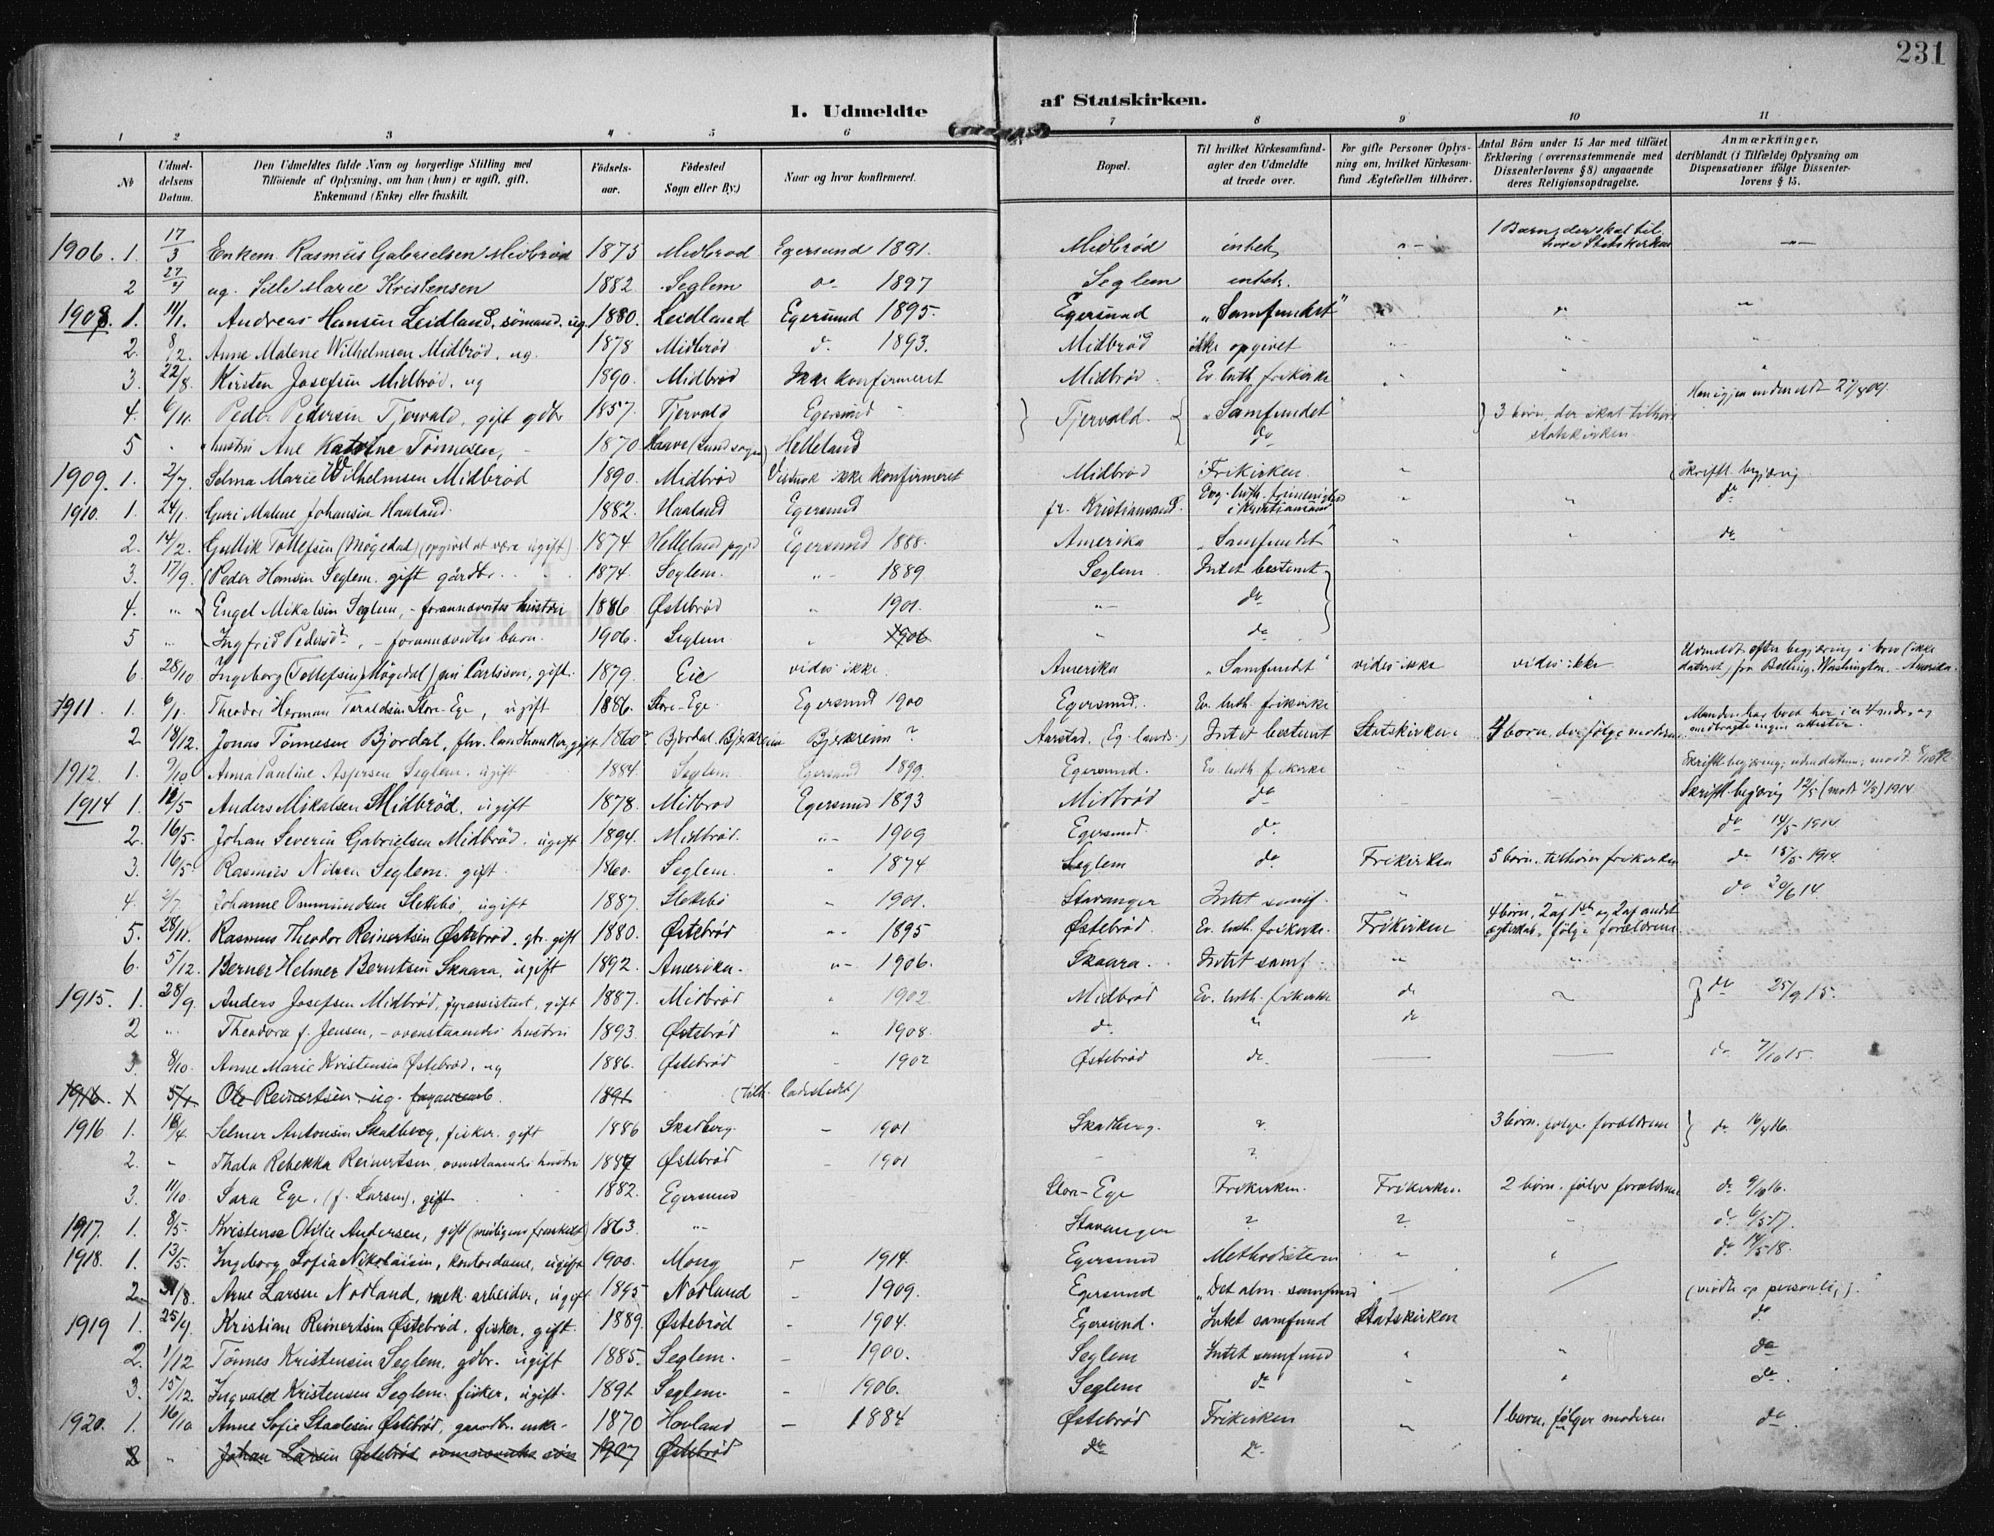 231
I. Udmeldte af Statskirken.
1 2 3 4 5 6 7 8 9 10 11
No Udmeldelsens Datum. Den Udmeldtes fulde Navn og borgerlige Stilling med Tilföiende af Oplysning, om han (hun) er ugift, gift, Enkemand (Enke) eller fraskilt. Födselsaar. Födested Sogn eller By.) Naar og hvor konfirmeret. Bopæl. Til hvilket Kirkesamfund agter den Udmeldte at træde over. For gifte Personer Oplysning om, hvilket Kirkesamfund Ægtefællen tilhörer. Antal Börn under 15 Aar med tilföiet Erklæring (overensstemmende med Dissenterlovens § 8) angaaende deres Religionsopdragelse. Anmærkninger, deriblandt (i Tilfælde) Oplysning om Dispensationer ifölge Dissenterlovens § 15.
1906. 1. 17/3 Enkem. Rasmus Gabrielsen Midbrød 1875 Midbrød Egersund 1891. Midbrød intet 1 Barn, der skal tilhøre Statskirken
2 27/4 ug. Sille Marie Kristensen 1882 Seglem do 1897 Seglem intet.
1908. 1. 11/1. Andreas Hansen Leidland, sømand, ug. 1880. Leidland Egersund 1895. Egersund "Samfundet" "
2. 8/2. Anne Malene Wilhelmsen Midbrød, ug. 1878 Midbrød d. 1893. Midbrød ikke opgivet
3. 22/8. Kirsten Josefsen Midbrød, ug 1890. Midbrød Ikke konfirmeret Midbrød. Ev. luth. frikirke
4. 6/10. Peder Pedersen Tjørvald, gift gdbr 1857. Tjørvald Egersund Tjervald. "Samfundet" 3 børn, der skal tilhøre statskirken. Han igjen indmeldt
5 " hustru Ane Tønnesen, 1870 (Lund sogn) Helleland do
1909. 1. 2/7. Selma Marie Wilhelmsen Midbrød 1890. Midbrød Vistnok ikke konfirmeret Midbrød Frikirken " Skriftl. begjæring
1910. 1 24/1. Guri Malene Johansen Haaland. 1882. Haaland Egersund fr. Kristianssand. Evg. luth. frimenighed i Kristianssand " do
2. 14/2. Gullik Tollefsen (Møgedal) (opgivet at være ugift) 1874 Helleland pgjd Egersund 1888. Amerika "Samfundet" do
3. 17/9. Peder Hansen Seglem. gift gårdbr. 1874. Seglem. " 1889 Seglem Intet bestemt
4. " Engel Mikalsen Seglem, - forannævntes hustru 1886 Østebrød " 1901. " do
5 " Ingfrid Pedersd., - forannævntes barn. 1906. Seglem. " 1906 " do
6. 28/10 Ingeborg (Tollefsen Møgedal) nu Carlsson, gift. 1879. Eie vides ikke. Amerika "Samfundet" vides ikke vides ikke Udmeldt efter begjæring i brev (ikke dateret) fra Belling. Washington. Amerika.
1911. 1. 6/1. Theodor Herman Taraldsen Store-Ege, ugift 1886. Store-Ege. Egersund 1900 Egersund. Ev. luth. frikirke
2 18/12. Jonas Tønnesen Bjordal, fhv. landhandler, gift 1860? Bjordal, Bjerkreim Bjerkreim ? Aarstad. (Eg. lands.) Intet bestemt Statskirken 4 børn, der følge moderen. Manden har boet her i ca 4 mdr., og medbragte ingen attester.
1912. 1. 9/10 Anna Pauline Aspersen Seglem, ugift 1884 Seglem. Egersund 1899. Egersund. Ev. luth. frikirke Skriftl. begjæring, uden datum, modt. 8/10 12.
1914 1. 12/5 Anders Mikalsen Midbrød, ugift 1878. Midbrød Egersund 1893 Midbrød do Skriftl. begjæring 12/5 (modt ) 1914
2. 16/5. Johan Severin Gabrielsen Midbrød. ugift 1894. Midbrød. " 1909 Egersund. do. do 14/5 1914.
3. 16/5. Rasmus Nilsen Seglem. gift. 1860. Seglem. " 1874 Seglem do Frikirken 5 børn. tilhører frikirken do 15/5 1914
4. 2/7. Johanne Ommundsen Slettebø, ugift 1887. Slettebø " 1901. Stavanger Intet samf. " do 30/6 14.
5. 28/11. Rasmus Theodor Reinertsen Østebrød. gbr. gift 1880. Østebrød " 1895 Østebrød. Ev. luth. frikirke. Frikirken 4 børn, 2 af 1ste og 2 af andet ægteskab, følge forældrene
6. 5/12. Berner Helmer Berntsen Skaara, ugift 1892. Amerika. " 1906. Skaara. Intet samf. "
1915. 1. 28/9 Anders Josefsen Midbrød, fyrassistent, gift 1887. Midbrød " 1902 Midbrød Ev. luth. frikirke do do 25/9 15.
2 " Theodora f. Jensen, - ovenstaaendes hustru 1893 Østebrød " 1908. do. " do
3. 8/10. Anne Marie Kristensen Østebrød, ug 1886. Østebrød " 1902 Østebrød do. — — do 7/10 15.
1916. 1 5/1. Ole Reinertsen, ug. 1891 (tilh. ladestedet)
1916 1. 18/4. Selmer Antonsen Skadberg, fisker. gift 1886 Skadberg. — 1901 Skadberg. ? 3 børn. følge forældrene do. 16/4 16.
2. " Thala Rebekka Reinertsen, ovenstaaendes hustru 1887 Østebrød — 1901 — ?
3. 11/10 Sara Ege, (f. Larsen), gift 1882. Egersund Store-Ege Frikirken. Frikirken. 2 børn. følge forældrene do 9/10 16.
1917. 1. 8/5. Kristense Otilie Andersen, gift (muligens fraskilt) 1863. " Stavanger ? ? do 6/5 17.
1918. 1. 13/5. Ingborg Sofia Nikolaisen, kontordame, ugift 1900. Mong — 1914. Egersund Methodisten " " do 14/5 18.
2. 31/8. Arne Larsen Nodland, mek. arbeider, ugift 1895 Nodland — 1909. Egersund "Det alm. samfund" —
1919 1. 25/9. Kristian Reinertsen Østebrød, fisker, gift. 1889. Østebrød — 1904. Egersund. Intet samfund Statskirken do
2. 1/12 Tønnes Kristensen Seglem. gdbr. ugift 1885. Seglem. — 1900. Seglem Intet samfund " " do
3. 15/12. Ingvald Kristensen Seglem. fisker, ugift. 1891 Seglem. — 1906. Seglem do " " do.
1920. 1. 16/10 Anne Sofie Staalesen Østebrød, gaardbr. enke. 1870 Hovland — 1884 Østebrød Frikirken " 1 barn, følger moderen do
2 " Johan Larsen Østebrød ovennævntes søn 1907 Østebrød do do.